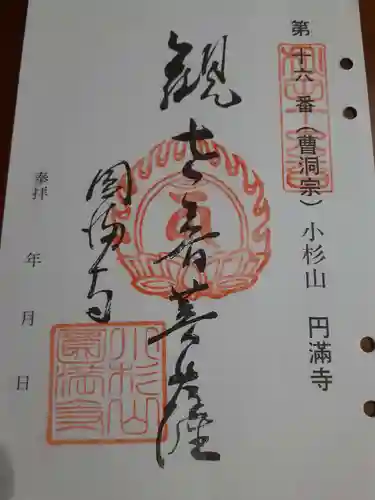 第十六番（曹洞宗）小杉山　円滿寺
観世音菩薩
圓満寺
奉拝　年　月　日
小杉山
圓満寺